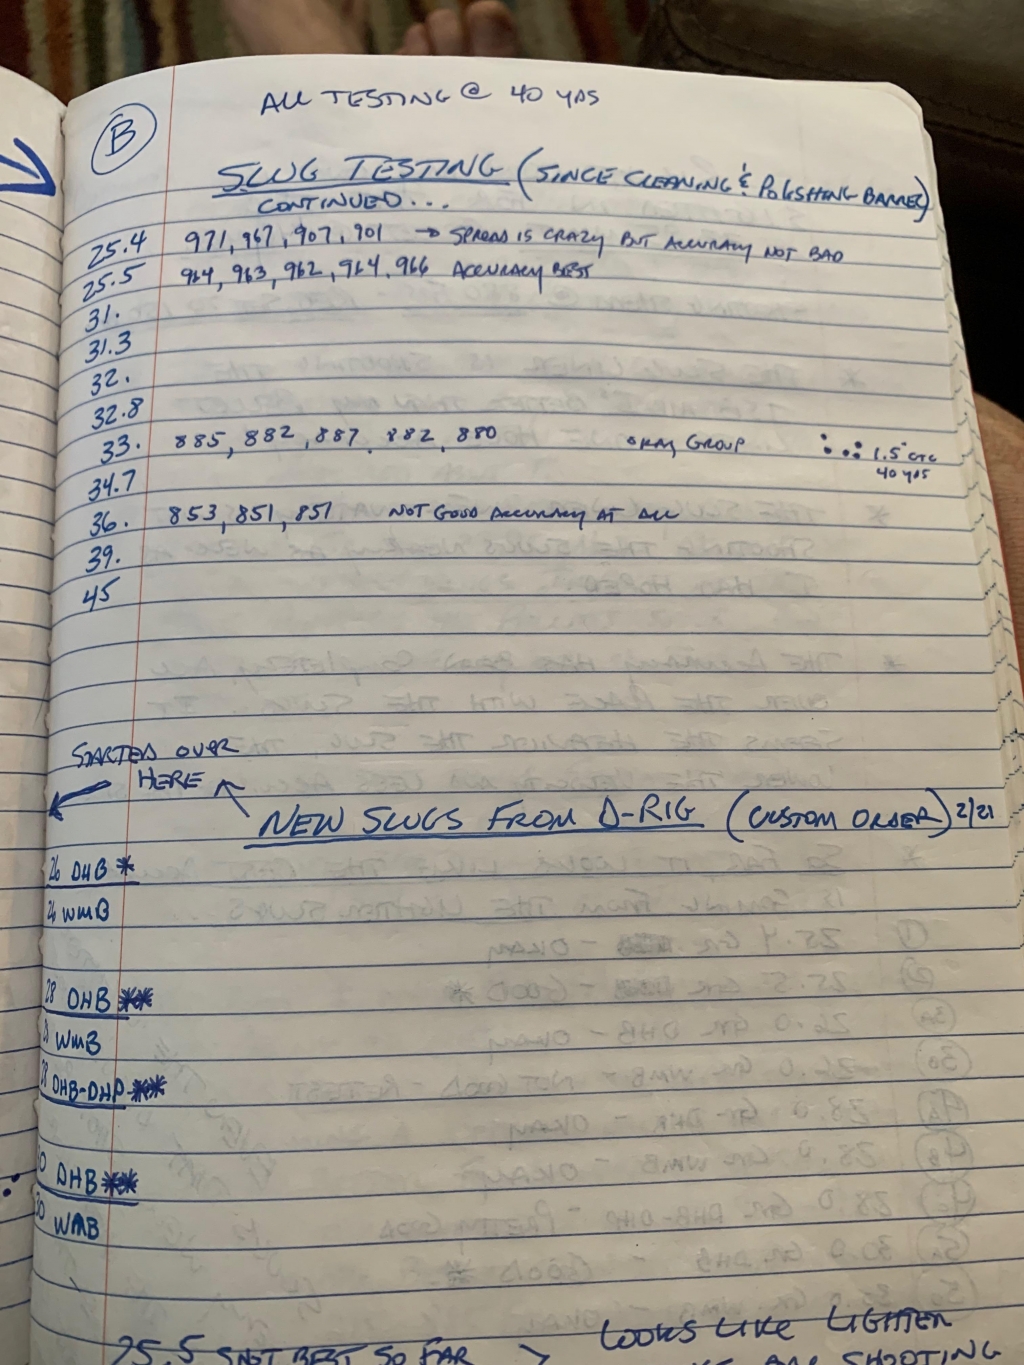 ALL TESTING @ 40 YDS
B
SLUG TESTING (SINCE CLEANING & POLISHING BARREL)
CONTINUED...
25.4 971, 967, 907, 901 → SPREAD IS CRAZY BUT ACCURACY NOT BAD
25.5 964, 963, 962, 964, 966 ACCURACY BEST
31.
31.3
32.
32.8
33. 885, 882, 887, 882, 880 OKAY GROUP 1.5" CTC
40 YDS
34.7
36. 853, 851, 851 NOT GOOD ACCURACY AT ALL
39.
45
STARTED OVER
HERE
NEW SLUGS FROM D-RIG (CUSTOM ORDER) 2/21
26 DHB *
26 WMB
28 DHB **
28 WMB
28 DHB-DHP-**
30 DHB **
30 WMB
25.5 SHOT BEST SO FAR > LOOKS LIKE LIGHTER
ARE SHOOTING